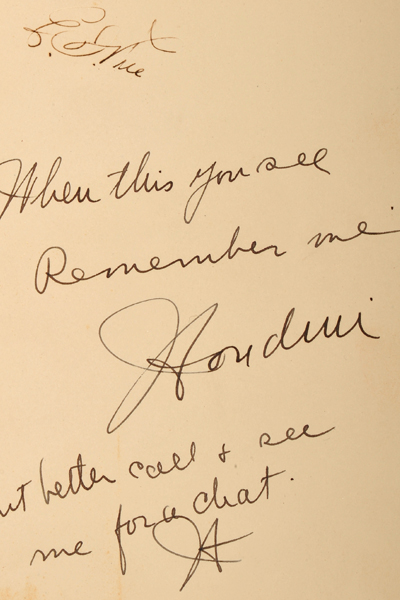 When this you see
Remember me
Houdini
but better call & see
me for a chat.
H